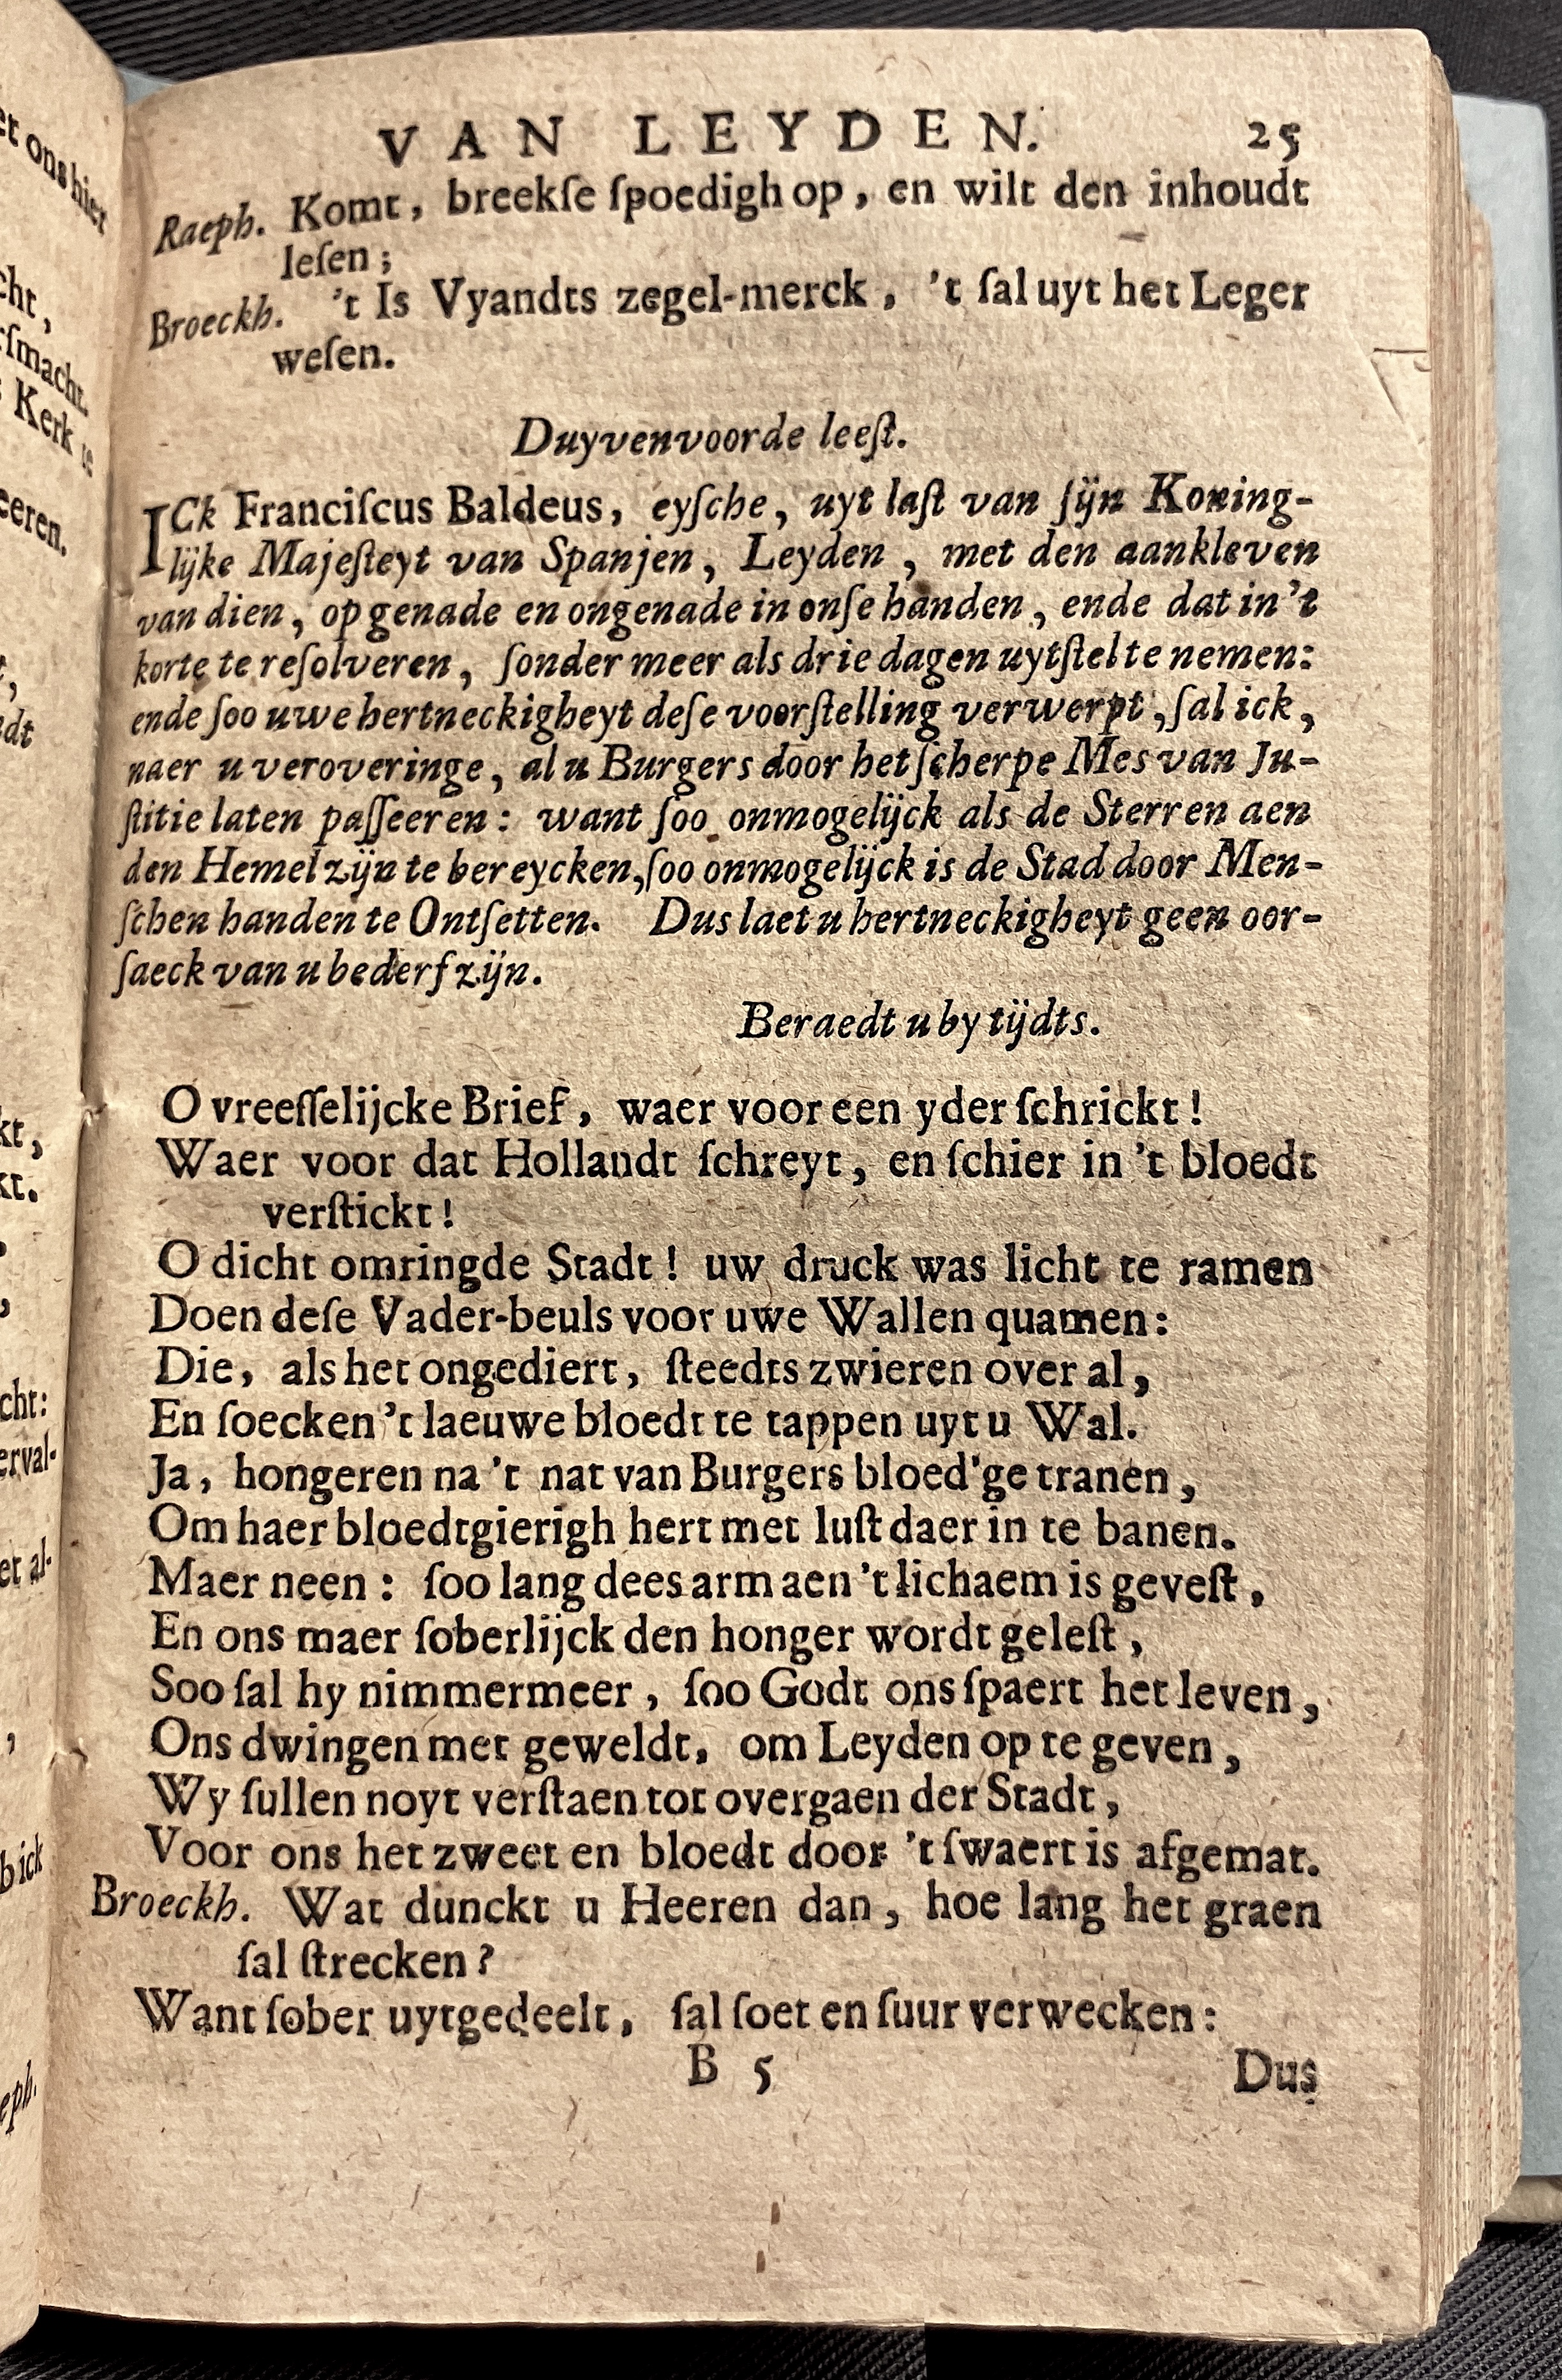 VAN LEYDEN. 25
Raeph. Komt, breekſe ſpoedigh op, en wilt den inhoudt
leſen;
Broeckh. 't Is Vyandts zegel-merck, 't ſal uyt het Leger
weſen.
Duyvenvoorde leeſt.
ICk Franciſcus Baldeus, eyſche, uyt laſt van ſijn Koning-
lijke Majeſteyt van Spanjen, Leyden, met den aankleven
van dien, op genade en ongenade in onſe handen, ende dat in 't
korte te reſolveren, ſonder meer als drie dagen uytſtel te nemen:
ende ſoo uwe hertneckigheyt deſe voorſtelling verwerpt, ſal ick,
naer u veroveringe, al u Burgers door het ſcherpe Mes van Ju-
ſtitie laten paſſeeren: want ſoo onmogelijck als de Sterren aen
den Hemel zijn te bereycken, ſoo onmogelijck is de Stad door Men-
ſchen handen te Ontſetten. Dus laet u hertneckigheyt geen oor-
ſaeck van u bederf zijn.
Beraedt u by tijdts.
O vreeſſelijcke Brief, waer voor een yder ſchrickt!
Waer voor dat Hollandt ſchreyt, en ſchier in 't bloedt
verſtickt!
O dicht omringde Stadt! uw druck was licht te ramen
Doen deſe Vader-beuls voor uwe Wallen quamen:
Die, als het ongediert, ſteedts zwieren over al,
En ſoecken 't laeuwe bloedt te tappen uyt u Wal.
Ja, hongeren na 't nat van Burgers bloed'ge tranen,
Om haer bloedtgierigh hert met luſt daer in te banen.
Maer neen: ſoo lang dees arm aen 't lichaem is geveſt,
En ons maer ſoberlijck den honger wordt geleſt,
Soo ſal hy nimmermeer, ſoo Godt ons ſpaert het leven,
Ons dwingen met geweldt, om Leyden op te geven,
Wy ſullen noyt verſtaen tot overgaen der Stadt,
Voor ons het zweet en bloedt door 't ſwaert is afgemat.
Broeckh. Wat dunckt u Heeren dan, hoe lang het graen
ſal ſtrecken?
Want ſober uytgedeelt, ſal ſoet en ſuur verwecken:
B 5 Dus